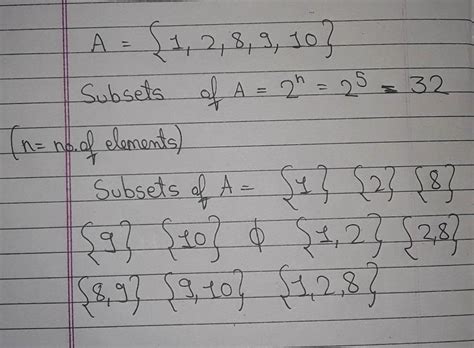 A = {1, 2, 8, 9, 10}
Subsets of A = 2ⁿ = 2⁵ = 32
(n = no. of elements)
Subsets of A = {1} {2} {8}
{9} {10} ϕ {1, 2} {2,8}
{8,9} {9,10} {1,2,8}